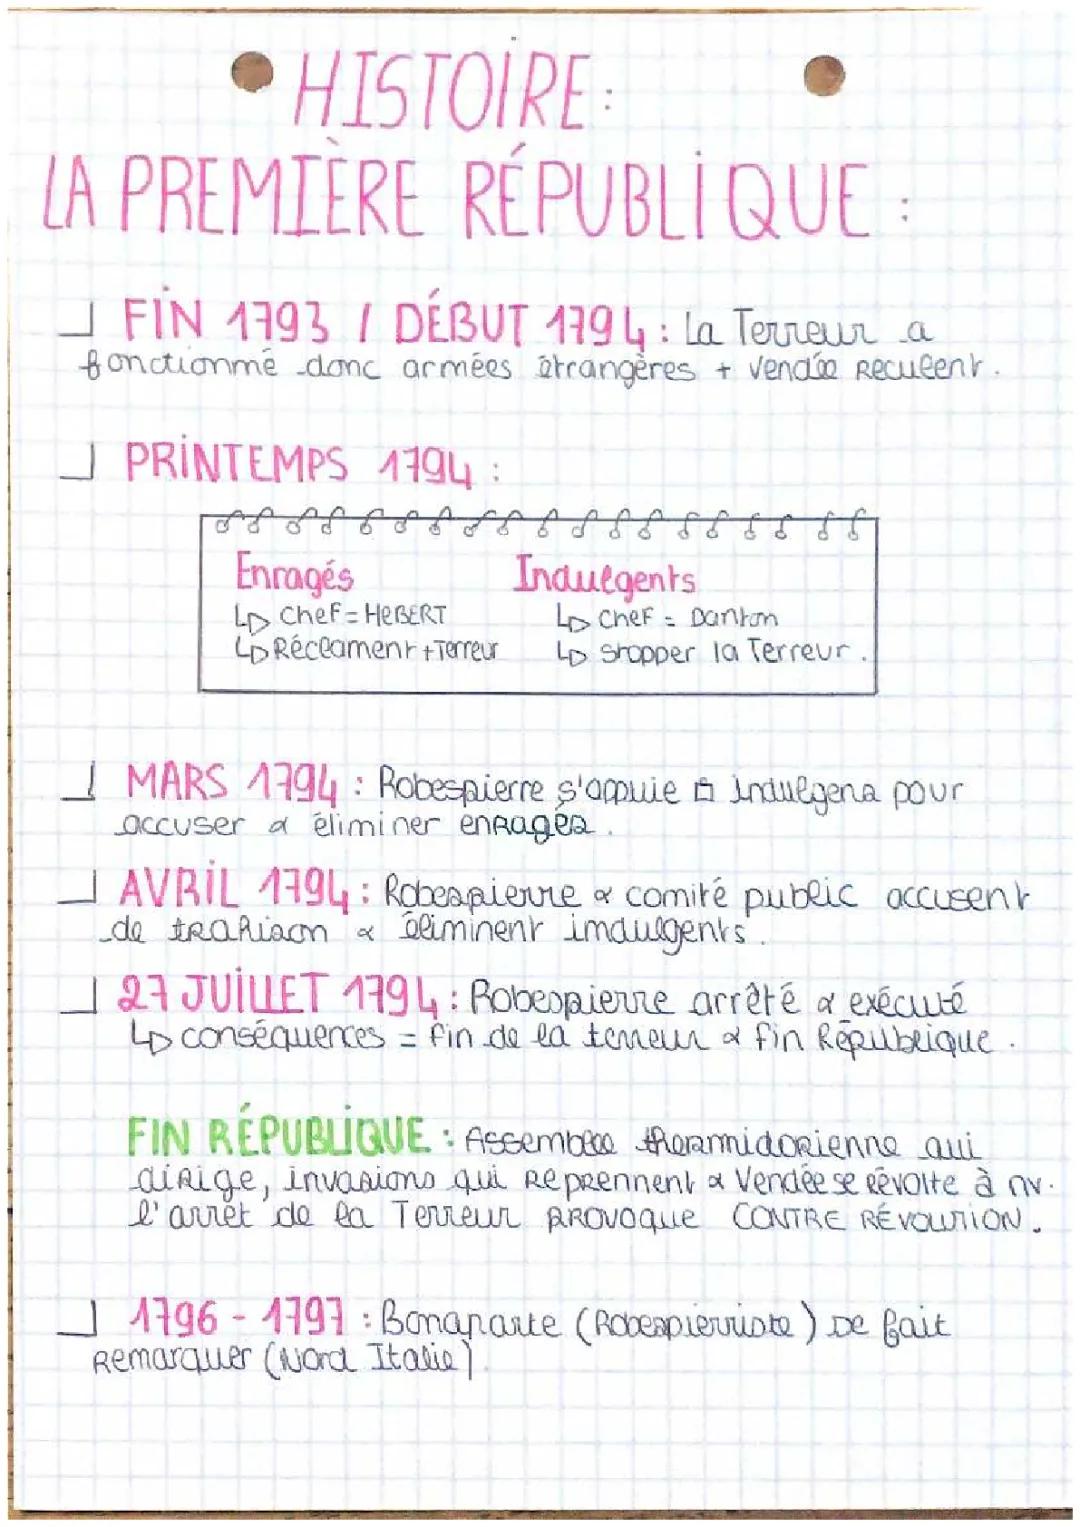 • HISTOIRE:
LA PREMIÈRE RÉPUBLIQUE :
FIN 1793 / DÉBUT 1794 : La Terreur a
fonctionné donc armées étrangères + Vendée Reculent.
PRINTEMPS 1794 :
Enragés Indulgents
↳ Chef = HEBERT ↳ Chef = Danton
↳ Réclament + Terreur ↳ stopper la Terreur.
MARS 1794 : Robespierre s'appuie indulgens pour
accuser & éliminer enRagés.
AVRIL 1794 : Robespierre & comité public accusent
de trahison & éliminent indulgents.
27 JUILLET 1794 : Robespierre arrêté & exécuté
↳ conséquences = fin de la terreur & fin République.
FIN RÉPUBLIQUE : Assemblée thermidorienne qui
dirige, invasions qui reprennent & Vendée se révolte à nv.
l'arrêt de la Terreur provoque CONTRE RÉVOLUTION.
1796 - 1797 : Bonaparte (Robespierriste) se fait
Remarquer (Nord Italie)